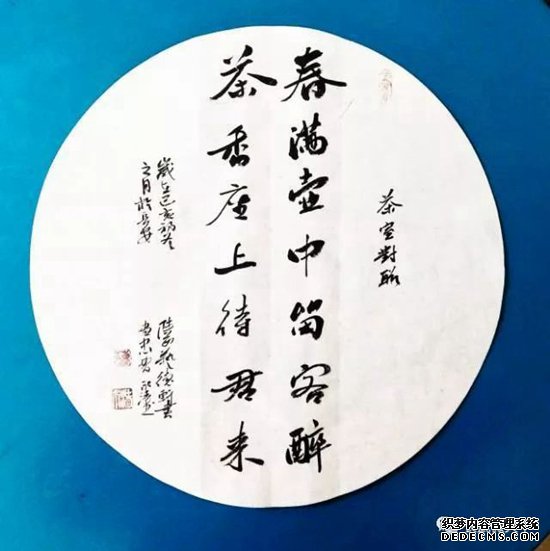 茶室對聯
春满壶中留客醉
茶香座上待君来
歲在己亥初冬
之月於長安
织梦内容管理系统
DEDECMS.COM